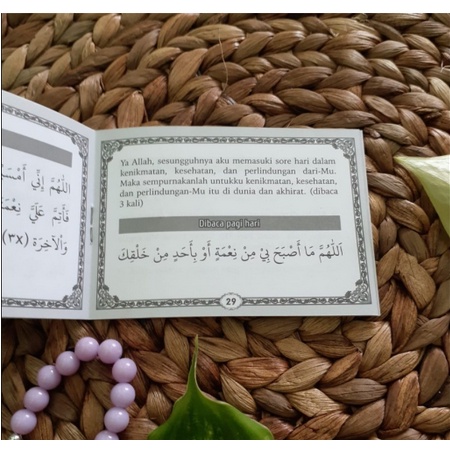 اَللّٰهُمَّ إِنِّي أَمْسَ
فَأَتِمَّ عَلَيَّ نِعْمَ
وَالْآخِرَةِ (٣x)
Ya Allah, sesungguhnya aku memasuki sore hari dalam
kenikmatan, kesehatan, dan perlindungan dari-Mu.
Maka sempurnakanlah untukku kenikmatan, kesehatan,
dan perlindungan-Mu itu di dunia dan akhirat. (dibaca
3 kali)
Dibaca pagi hari
اَللّٰهُمَّ مَا أَصْبَحَ بِيْ مِنْ نِعْمَةٍ أَوْ بِأَحَدٍ مِنْ خَلْقِكَ
29